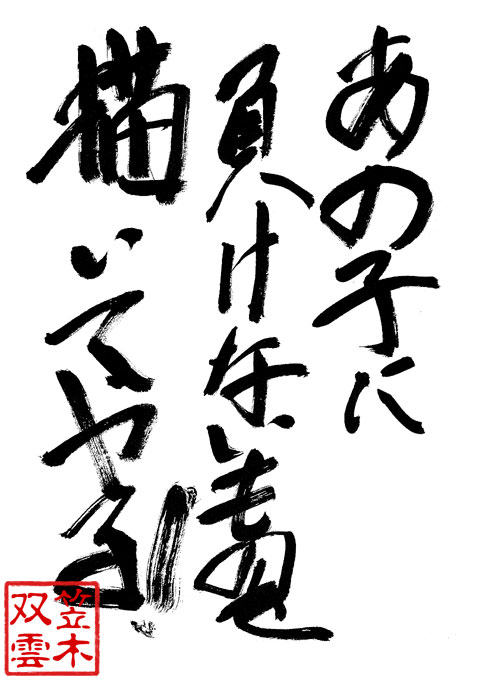 あの子に
負けない畫
描いてやる!!
笠木
双雲